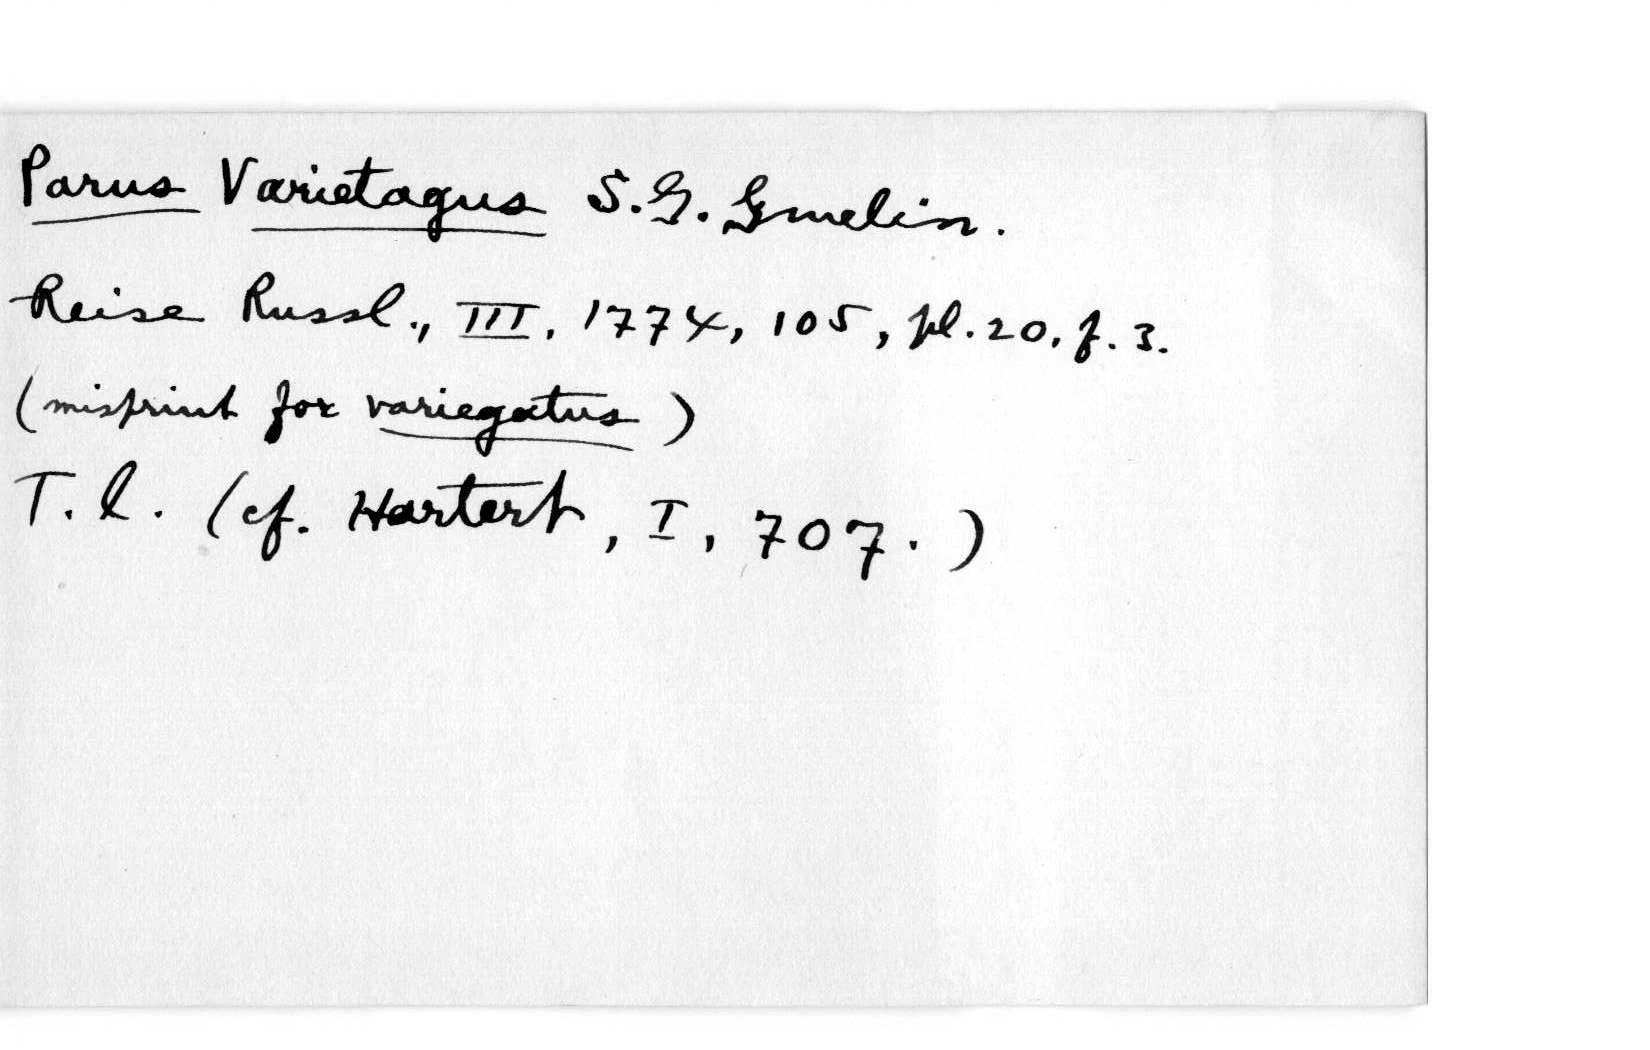 Parus Varietagus S.G. Gmelin.
Reise Russl., III, 1774, 105, pl. 20, f. 3.
(misprint for variegatus)
T.l. (cf. Hartert, I, 707.)